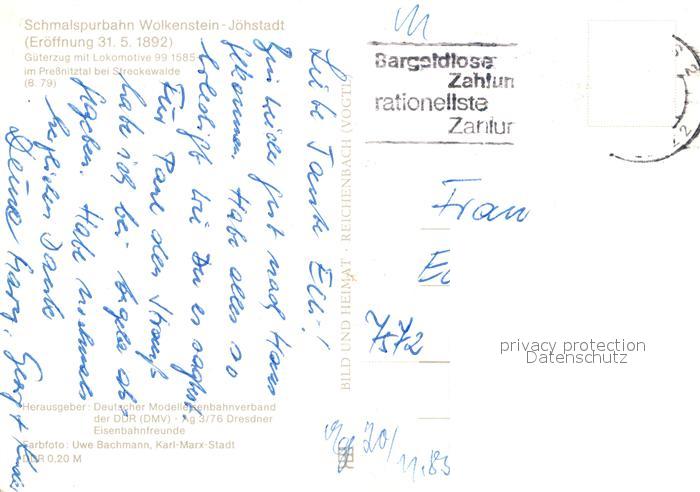 Schmalspurbahn Wolkenstein-Jöhstadt
(Eröffnung 31. 5. 1892)
Güterzug mit Lokomotive 99 1585
im Preßnitztal bei Streckewalde
(8. 79)
Liebe Tante Elli!
Bin wieder gut nach Haus
gekommen. Habe alles so
erledigt wie Du es sagtest.
Für Paul den Strauß
habe ich bei Angela ab-
gegeben. Habe nochmals
herzlichen Dank
Deine Harry, Georg + Kinder
Herausgeber: Deutscher Modelleisenbahnverband
der DDR (DMV) · Kg 3/76 Dresdner
Eisenbahnfreunde
Farbfoto: Uwe Bachmann, Karl-Marx-Stadt
DDR 0,20 M
BILD UND HEIMAT · REICHENBACH (VOGTL
Bargeldlose
Zahlun
rationellste
Zahlun
Frau
7572
20/
11.83
privacy protection
Datenschutz